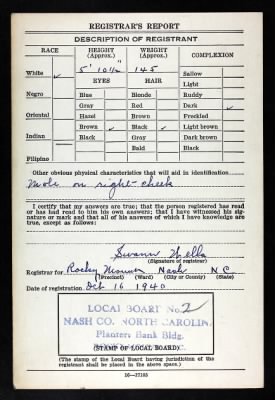 REGISTRAR'S REPORT
DESCRIPTION OF REGISTRANT
RACE HEIGHT (Approx.) WEIGHT (Approx.) COMPLEXION
5' 10½" 145
White ✓ EYES HAIR Sallow
Light
Negro Blue Blonde Ruddy
Gray Red Dark ✓
Oriental Hazel Brown Freckled
Brown ✓ Black ✓ Light brown
Indian Black Gray Dark brown
Bald Black
Filipino
Other obvious physical characteristics that will aid in identification
Mole on right cheek
I certify that my answers are true; that the person registered has read or has had read to him his own answers; that I have witnessed his signature or mark and that all of his answers of which I have knowledge are true, except as follows:
(Signature of registrar)
Registrar for Rocky Mount Nash N.C.
(Precinct) (Ward) (City or County) (State)
Date of registration Oct 16 1940
LOCAL BOARD No. 2
NASH CO. NORTH CAROLINA
Planters Bank Bldg.
(STAMP OF LOCAL BOARD)
(The stamp of the Local Board having jurisdiction of the registrant shall be placed in the above space.)
16—17105